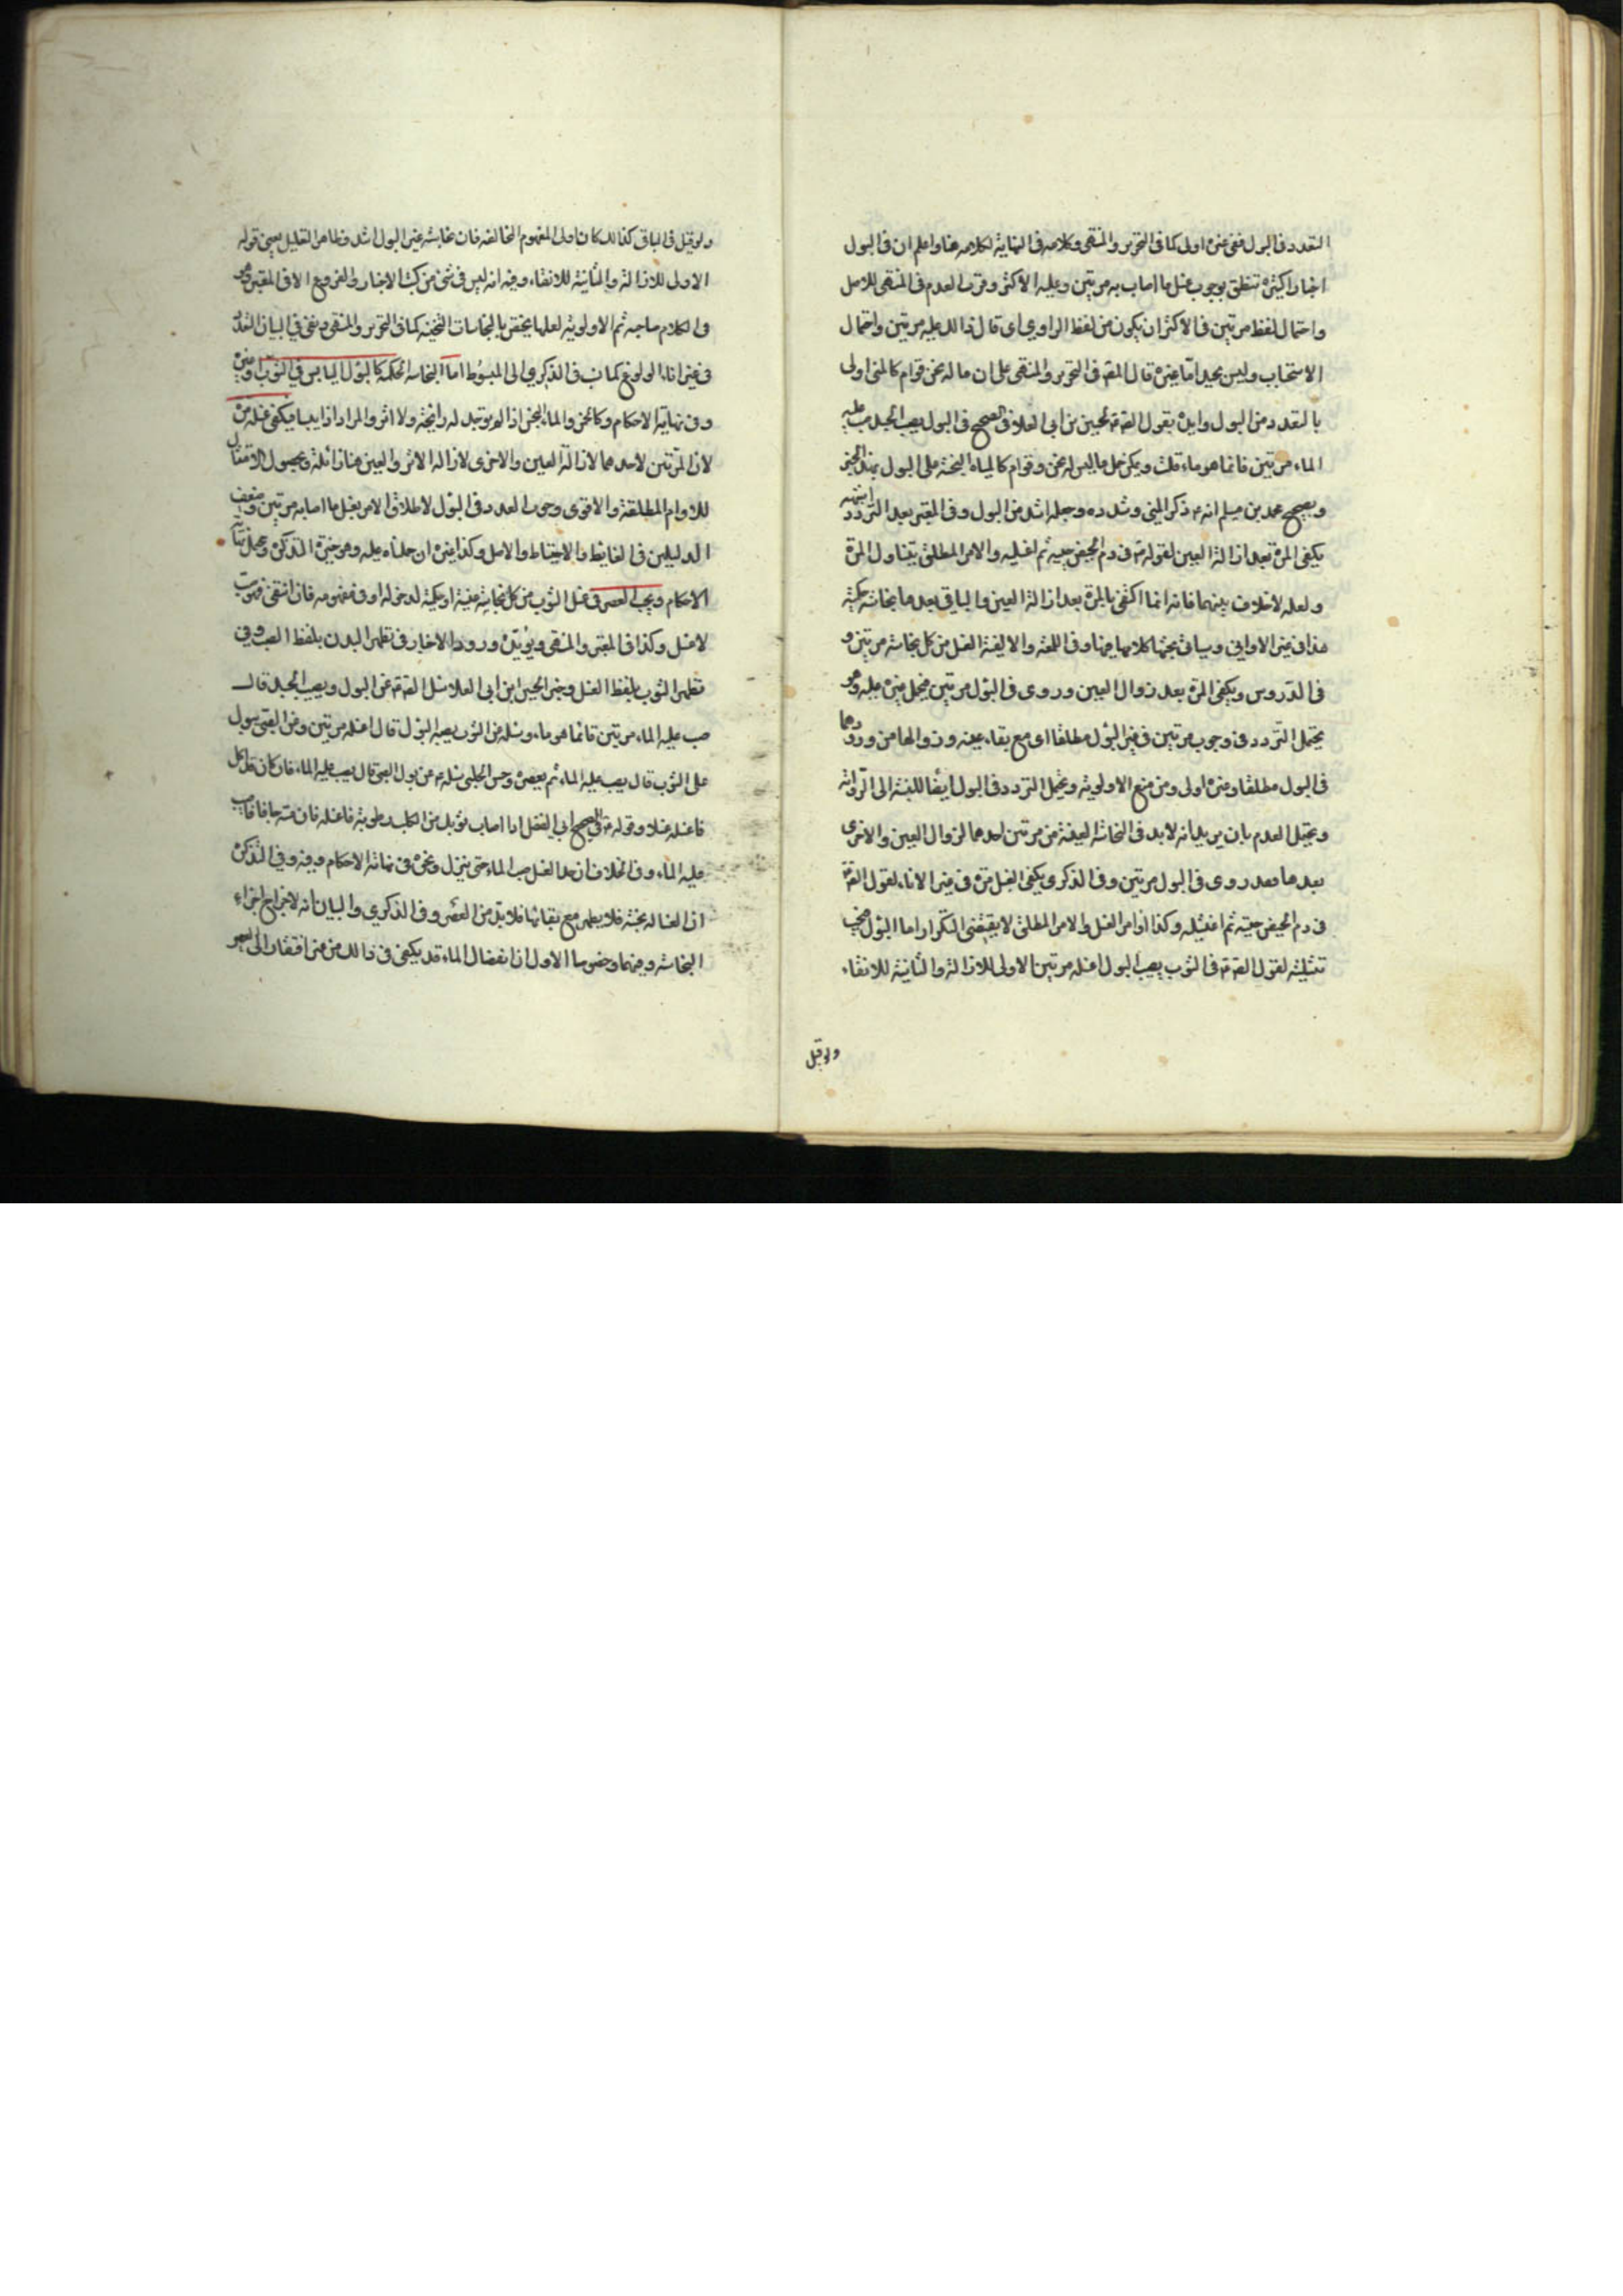 التعدد في البول ففي غيره اولى كما في التحرير والمنتهى وكلامه في النهاية لكلامه هنا واعلم ان في البول
اخبارا كثيرة تنطق بوجوب غسل ما اصاب به مرتين وعليه الاكثر وقرب العدم في المنتهى للاصل
واحتمال لفظ مرتين في الاكثر ان يكون من لفظ الراوي اي قال ذالك عليه مرتين واحتمال
الاستحباب وليس بجيد اما غيره قال المصه في التحرير والمنتهى على ان ما له ثخن وقوام كالمني اولى
بالتعدد من البول وايده بقول الصه لحسين بن ابي العلا في الصحيح في البول يصيب الجسد صب عليه
الماء مرتين فانما هو ماء قلت ويمكن حمل ما ليس له ثخن وقوام كالمياه النجسة على البول بهذا الخبر
وبصحيح محمد بن مسلم انه ع ذكر المني وشدده وجعله اشد من البول وفي المعتبر بعد التردد انه
يكفي المرة بعد ازالة العين لقوله ع في دم الحيض حتيه ثم اغسليه والامر المطلق يتناول المرة
ولعله لا خلاف بينهما فانه انما اكتفى بالمرة بعد ازالة العين والباقي بعدها نجاسة حكمية
هذا في غير الاواني وسياتي بحثها كلامهما فيها وفي اللمعة والالفية الغسل من كل نجاسة مرتين و
في الدروس ويكفي المرة بعد زوال العين وروى في البول مرتين فيحمل غيره عليه وهو
يحتمل التردد في وجوب مرتين في غير البول مطلقا اي مع بقاء عينه وزوالها من ورودهما
في البول مطلقا وغيره اولى ومن منع الاولوية ويحتمل التردد في البول ايضا للنسبة الى الرواية
ويحتمل العدم بان يريد انه لا بد في النجاسة العينية من مرتين احدهما لزوال العين والاخرى
بعدها وقد روى في البول مرتين وفي الذكرى يكفي الغسل مرة في غير الاناء لقول الصه
في دم الحيض حتيه ثم اغسليه وكذا اوامر الغسل والامر المطلق لا يقتضي التكرار اما البول فيجب
تثنيته لقول الصه ع في الثوب يصيبه البول اغسله مرتين الاولى للازالة والثانية للانقاء
ولو قيل
ولو قيل في الباقي كذالك كان اولى لمفهوم المخالفة فان نجاسة غير البول اشد وظاهر التعليل يعني قوله
الاولى للازالة والثانية للانقاء وفيه انه ليس في شيء من كتب الاخبار والفروع الا في المعتبر وهو
في الكلام صاحبه ثم الاولوية لعلها يختص بالنجاسات الثخينة كما في التحرير والمنتهى ونفى في البيان التعدد
في غير اناء الولوغ كما نسب في الذكرى الى المبسوط اما النجاسة الحكمية كالبول اليابس في الثوب وغيره
وفي نهاية الاحكام وكالخمر والماء النجس اذا لم يوجد له رائحة ولا اثر والمراد اذا يبسا فيكفي غسله مرة
لان المرتين لاحدهما لازالة العين والاخرى لازالة الاثر والعين هنا زائلة وبحصول الامتثال
للاوامر المطلقة والاقوى وجوب العدد في البول لاطلاق الامر بغسل ما اصابه مرتين وضعف
الدليلين في الغائط والاحتياط والاصل وكذا غيره ان حملناه عليه وهو خيرة التذكرة ويحمل نهاية
الاحكام ويجب العصر في غسل الثوب من كل نجاسة عينية او حكمية لدخوله او في مفهومه فان انتفى فصب
لا غسل وكذا في المعتبر والمنتهى ويؤيده ورود الاخبار في تطهير البدن بلفظ الصب وفي
تطهير الثوب بلفظ الغسل وخبر الحسين ابن ابي العلا سئل الصه ع عن البول ويصيب الجسد قال
صب عليه الماء مرتين فانما هو ماء وسئله عن الثوب يصيبه البول قال اغسله مرتين وعن الصبي يبول
على الثوب قال يصب عليه الماء ثم يعصره وحسن الحلبي سئله ع عن بول الصبي قال يصب عليه الماء فان كان قد اكل
فاغسله غسلا وقوله ع في الصحيح ابي الفضل اذا اصاب ثوبك من الكلب رطوبة فاغسله فان مسه جافا فاصبب
عليه الماء وفي الخلاف ان حد الغسل صب الماء حتى ينزل ونحوه في نهاية الاحكام وفيه وفي التذكرة
ان الغسالة نجسة فلا يطهر مع بقائها فلا بد من العصر وفي الذكرى والبيان انه لاخراج اجزاء
النجاسة وفيهما وخصوصا الاول ان انفصال الماء قد يكفي في ذالك من غير افتقار الى العصر